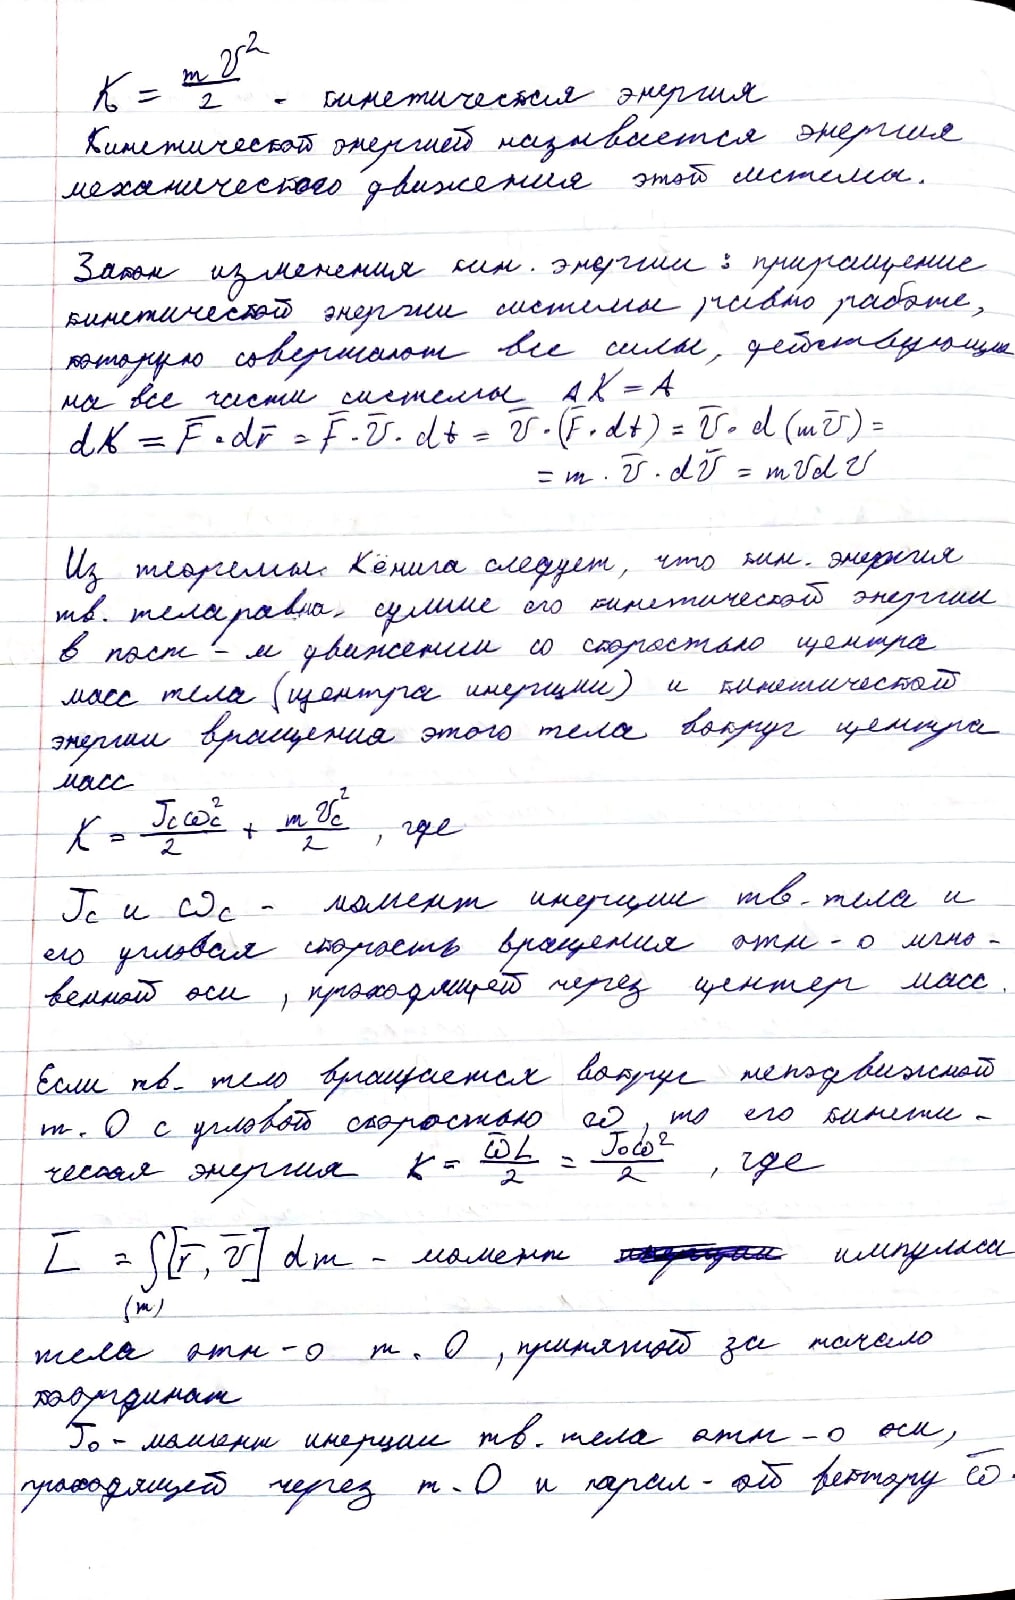 K = mV²/2 - кинетическая энергия
Кинетической энергией называется энергия
механического движения этой системы.
Закон изменения кин. энергии : приращение
кинетической энергии системы равно работе,
которую совершают все силы, действующие
на все части системы ΔK = A
dK = F̄ · dr̄ = F̄ · V̄ · dt = V̄ · (F̄ · dt) = V̄ · d (mV̄) =
= m · V̄ · dV̄ = mVdV
Из теоремы Кёнига следует, что кин. энергия
тв. тела равна сумме его кинетической энергии
в пост - м движении со скоростью центра
масс тела (центра инерции) и кинетической
энергии вращения этого тела вокруг центра
масс
K = J_cω_c²/2 + mV_c²/2 , где
J_c и ω_c - момент инерции тв. тела и
его угловая скорость вращения отн - о мгно -
венной оси , проходящей через центр масс.
Если тв. тело вращается вокруг неподвижной
т. O с угловой скоростью ω̄ , то его кинети -
ческая энергия K = ω̄L̄/2 = J₀ω²/2 , где
L̄ = ∫₍ₘ₎ [r̄, V̄] dm - момент импульса
тела отн - о т. O , принятой за начало
координат
J₀ - момент инерции тв. тела отн - о оси,
проходящей через т. O и парал - ой вектору ω̄.